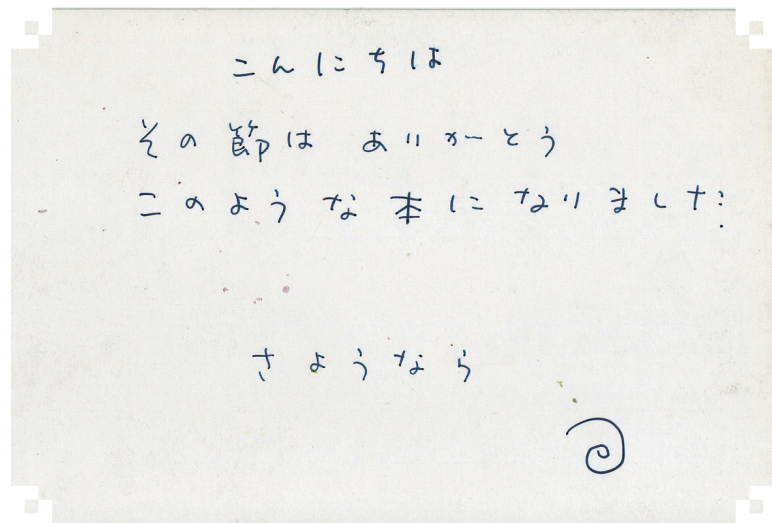 こんにちは
その節は ありがとう
このような本になりました
さようなら